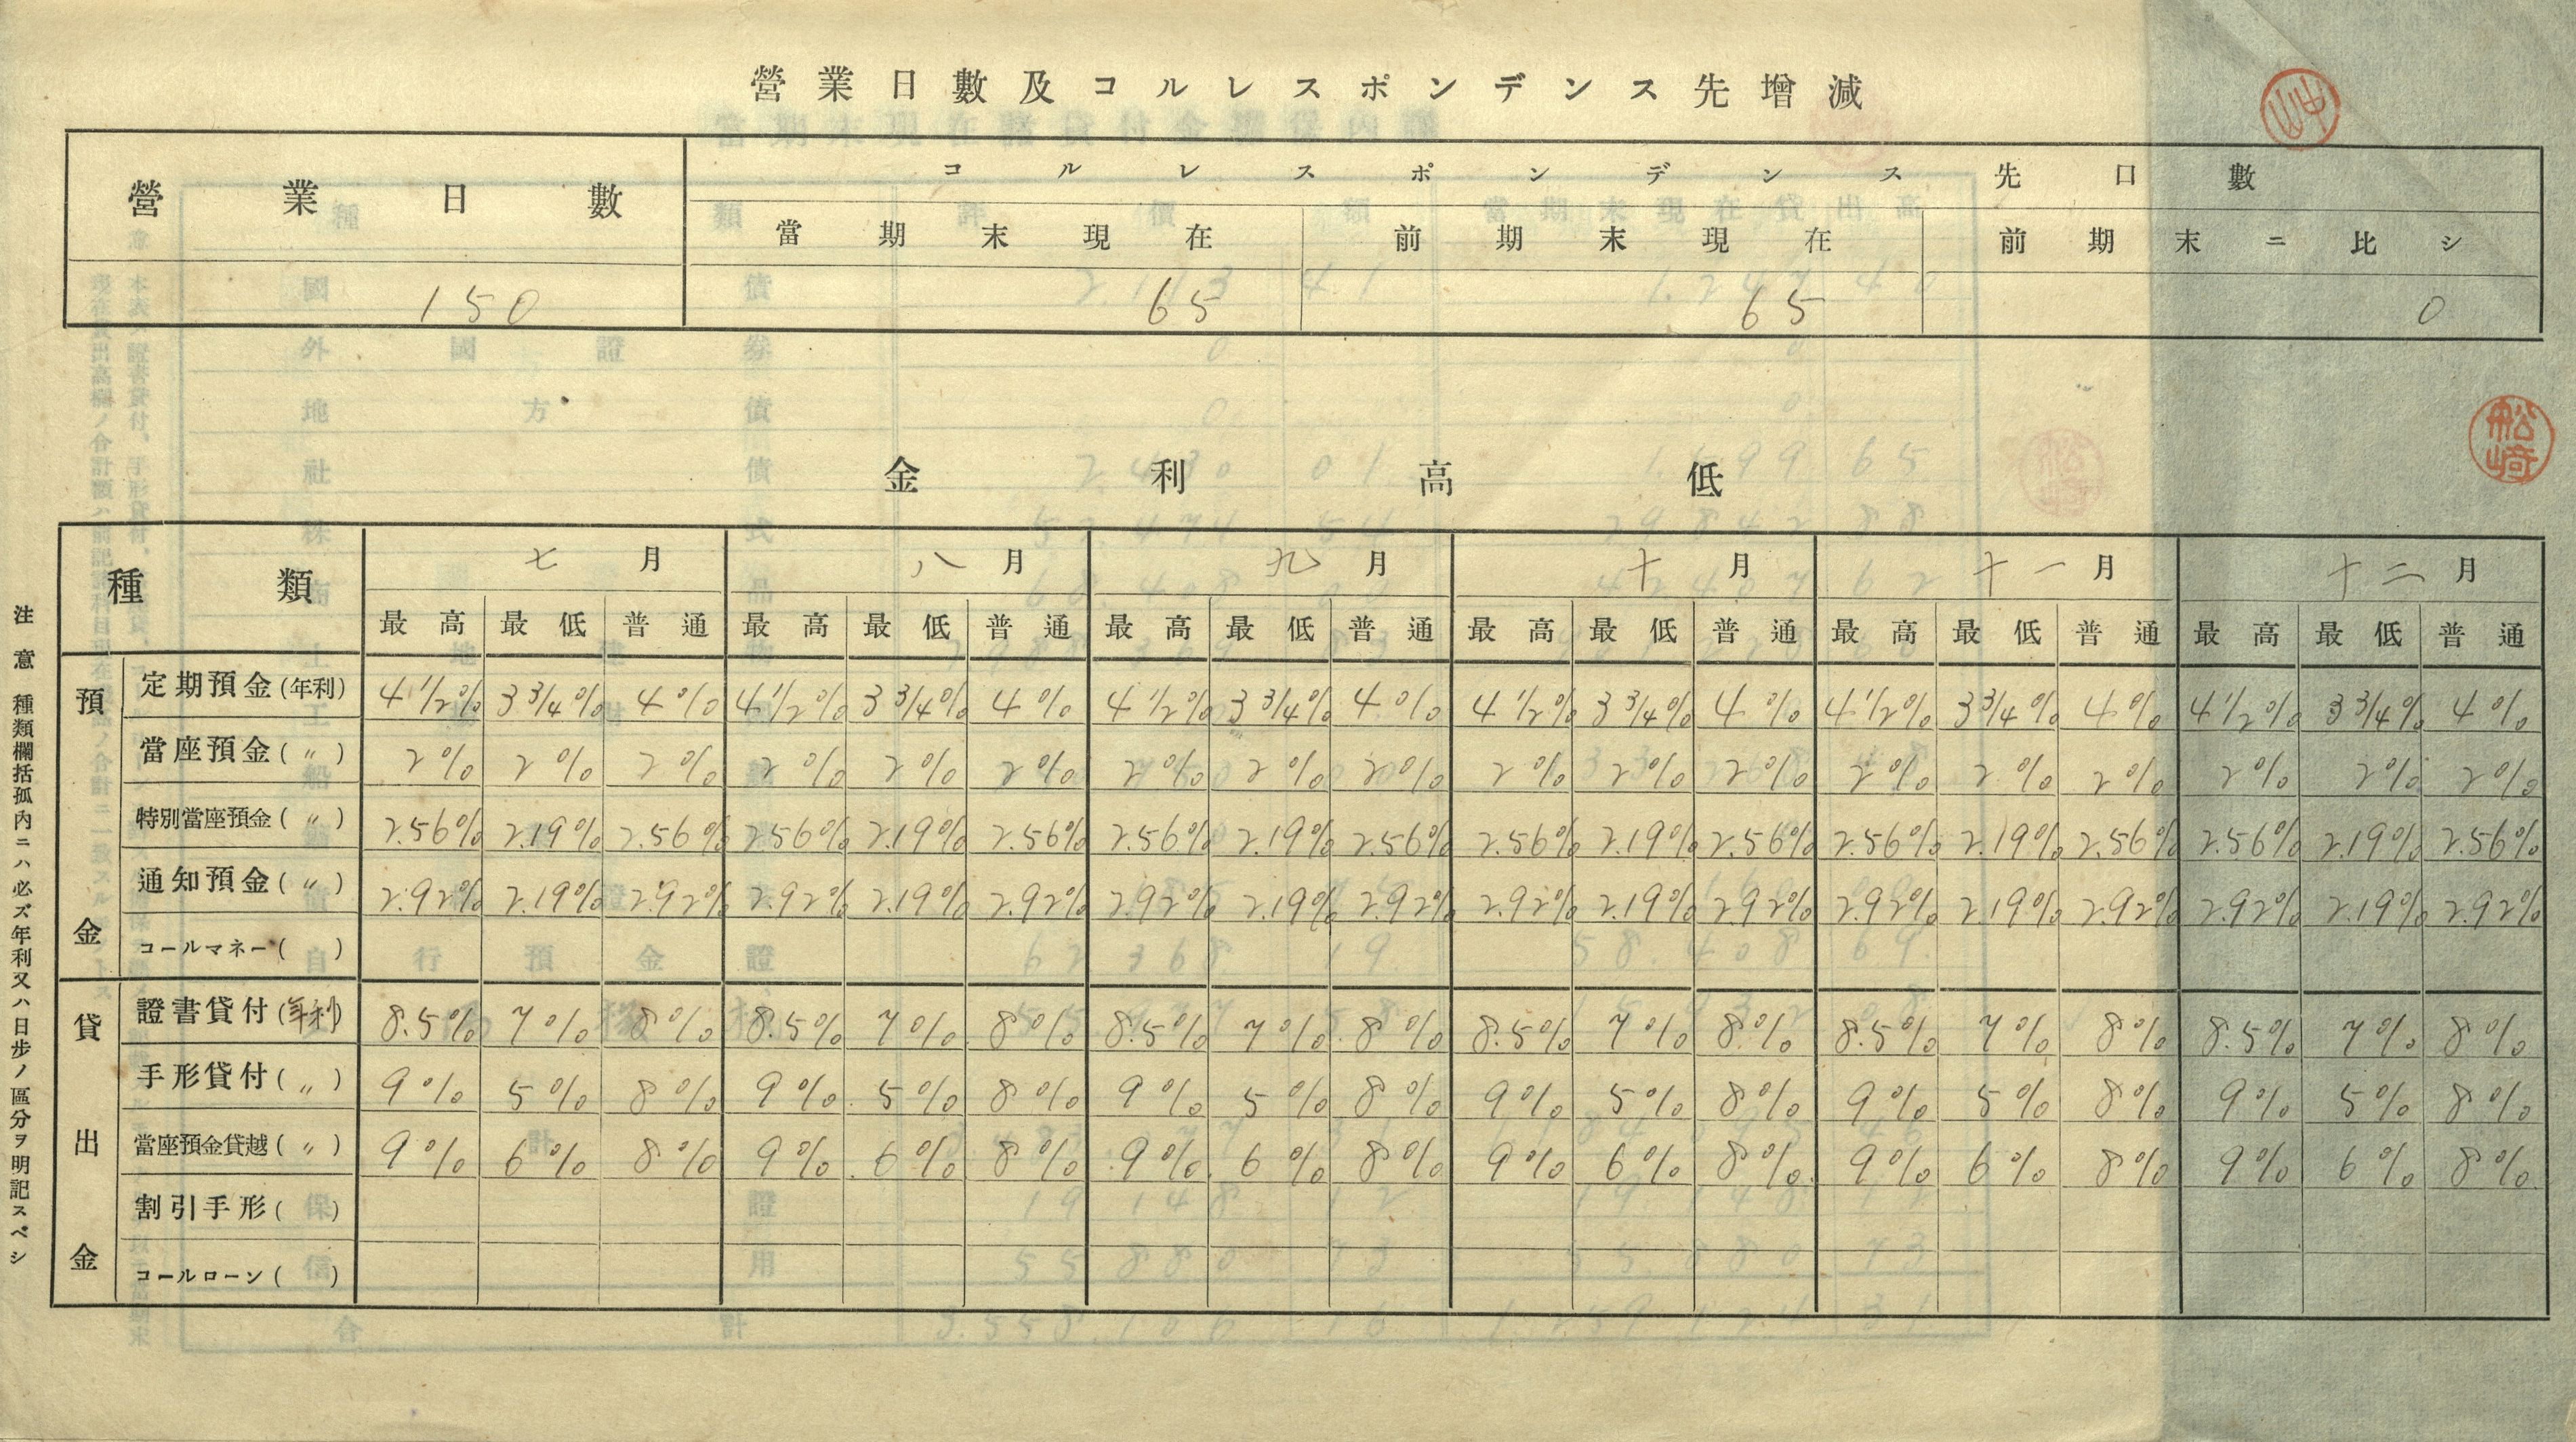 營業日數及コルレスポンデンス先增減
營業日數 コルレスポンデンス先口數
當期末現在 前期末現在 前期末ニ比シ
150 65 65 0
金利高低
種類 七月 八月 九月 十月 十一月 十二月
最高 最低 普通 最高 最低 普通 最高 最低 普通 最高 最低 普通 最高 最低 普通 最高 最低 普通
預金
定期預金(年利) 4 1/2% 3 3/4% 4% 4 1/2% 3 3/4% 4% 4 1/2% 3 3/4% 4% 4 1/2% 3 3/4% 4% 4 1/2% 3 3/4% 4% 4 1/2% 3 3/4% 4%
當座預金(〃) 2% 2% 2% 2% 2% 2% 2% 2% 2% 2% 2% 2% 2% 2% 2% 2% 2% 2%
特別當座預金(〃) 2.56% 2.19% 2.56% 2.56% 2.19% 2.56% 2.56% 2.19% 2.56% 2.56% 2.19% 2.56% 2.56% 2.19% 2.56% 2.56% 2.19% 2.56%
通知預金(〃) 2.92% 2.19% 2.92% 2.92% 2.19% 2.92% 2.92% 2.19% 2.92% 2.92% 2.19% 2.92% 2.92% 2.19% 2.92% 2.92% 2.19% 2.92%
コールマネー( )
貸出金
證書貸付(年利) 8.5% 7% 8% 8.5% 7% 8% 8.5% 7% 8% 8.5% 7% 8% 8.5% 7% 8% 8.5% 7% 8%
手形貸付(〃) 9% 5% 8% 9% 5% 8% 9% 5% 8% 9% 5% 8% 9% 5% 8% 9% 5% 8%
當座預金貸越(〃) 9% 6% 8% 9% 6% 8% 9% 6% 8% 9% 6% 8% 9% 6% 8% 9% 6% 8%
割引手形( )
コールローン( )
注意 種類欄括孤内ニハ必ズ年利又ハ日步ノ區分ヲ明記スベシ
松崎